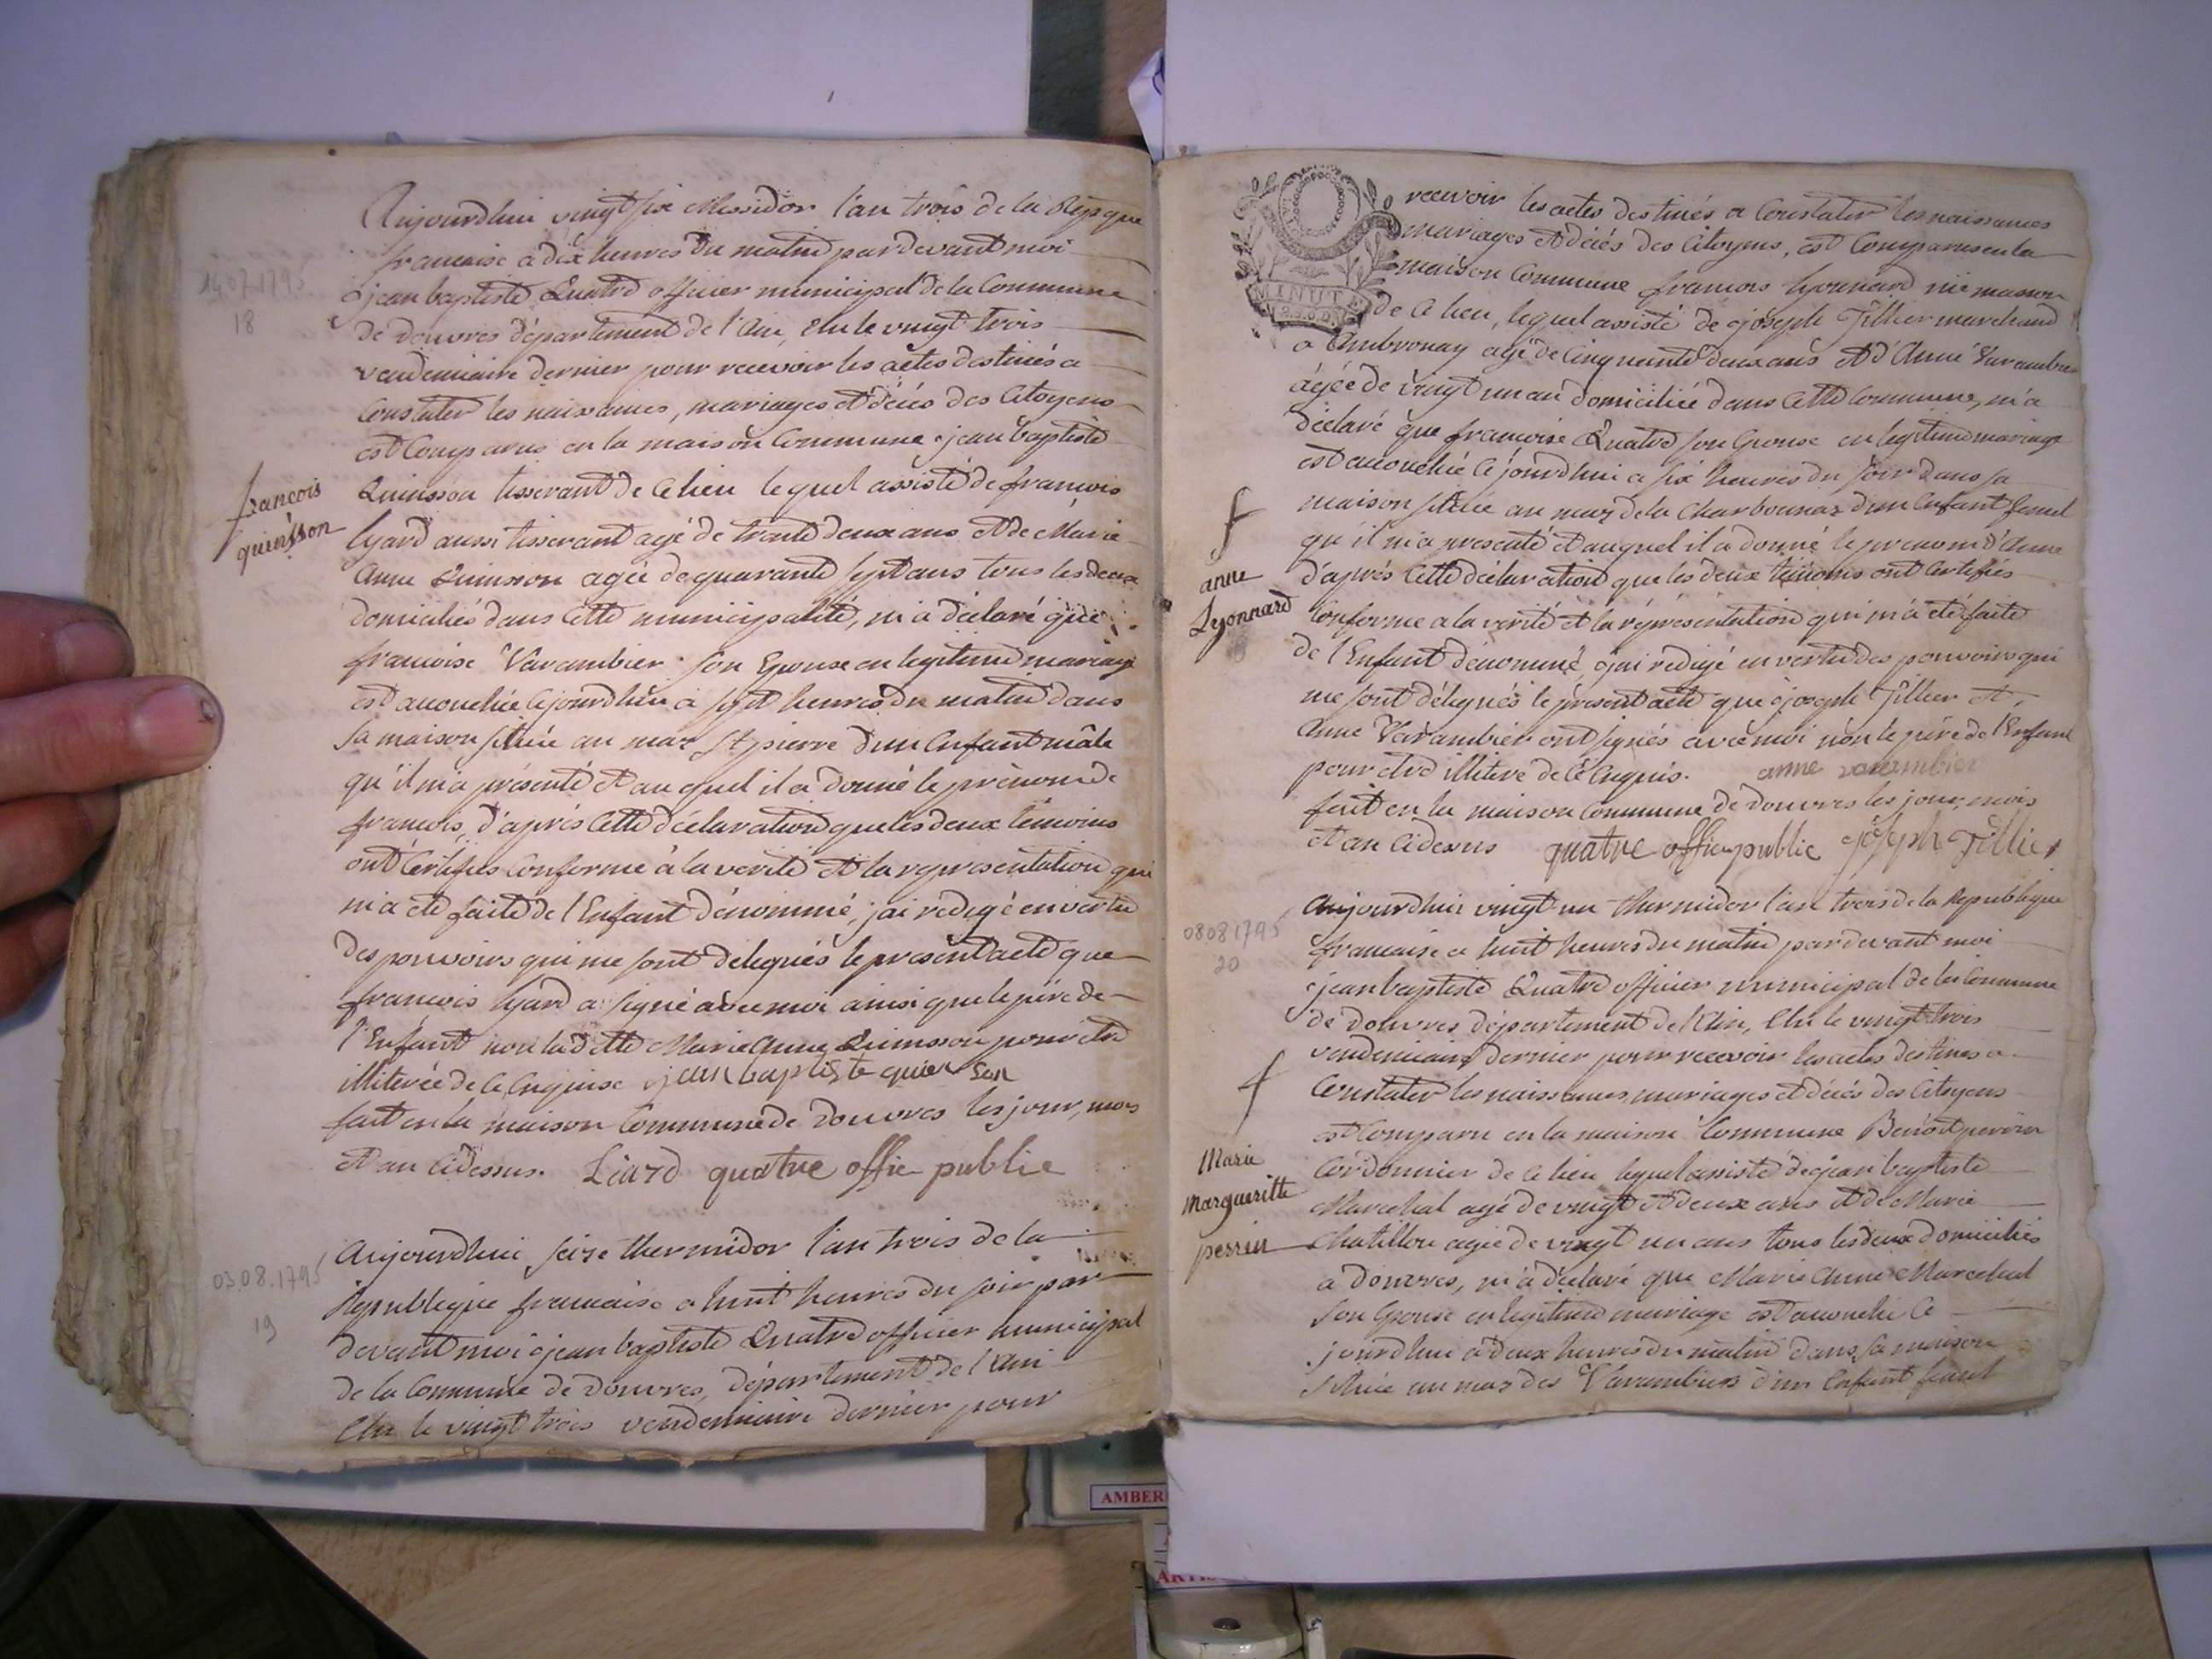 Aujourdhui vingt six Messidor l'an trois de la Repque
francaise a dix heures du matin pardevant moi
jean baptiste Quatre officier municipal de la Commune
de Douvres département de l'Ain, élu le vingt trois
vendemiaire dernier pour recevoir les actes destinés a
Constater les naissances, mariages et décés des Citoyens
est Comparu en la maison Commune jean baptiste
Quinsson tisserant de ce lieu lequel assisté de francois
lyard aussi tisserant agé de trante deux ans et de Marie
anne Quinsson agée de quarante sept ans tous les deux
domiciliés dans cette municipalité, m'a déclaré que
francoise Varambier son Epouse en legitime mariage
est accouchée cejourdhui a sept heures du matin dans
sa maison située au mas St pierre d'un Enfant mâle
qu'il m'a présenté et au quel il a donné le prénom de
francois, d'aprés cette déclaration que les deux témoins
ont certifiés conforme à la verité et la representation qui
m'a eté faite de l'Enfant dénommé, j'ai redigé en vertu
des pouvoirs qui me sont delegués le present acte que
francois lyard a signé avec moi ainsi que le pére de
l'Enfant non la dette Marie anne Quinsson pour etre
illiterée de ce Enquise jean baptiste quierson
fait en la maison Commune de Douvres les jour, mois
et an cidessus. Liard quatre offie publie
francois
quiersson
14.07.1795
18
Aujourdhui seize thermidor l'an trois de la
Republique francaise a huit heures du soir par
devant moi jean baptiste Quatre officier municipal
de la Commune de Douvres, département de l'Ain
élu le vingt trois vendemiaire dernier pour
03.08.1795
19
MINUTE
recevoir les actes destinés a Constater les naissances
mariages et décés des Citoyens, est Comparu en la
maison Commune francois lyonnard masson
de ce lieu, lequel assisté de joseph Tillier marchand
a Ambronay agé de cinquante deux ans et d'Anne Varambier
agée de vingt un an domiciliée dans cette commune, m'a
déclaré que francoise Quatre son Epouse en legitime mariage
est accouchée cejourdhui a six heures du soir dans sa
maison située au mas de la Charbonnas d'un Enfant femel
qu'il m'a presenté et auquel il a donné le prenom d'anne
d'aprés cette déclaration que les deux témoins ont certifiés
conforme a la verité et la réprésentation qui m'a eté faite
de l'Enfant dénommé, j'ai redigé en vertu des pouvoirs qui
me sont délegués le present acte que joseph Tillier et
anne Varambier ont signés avec moi non le pére de l'Enfant
pour etre illiteré de ce Enquis. anne varambier
fait en la maison Commune de Douvres les jour, mois
et an cidessus quatre offie publie joseph Tillier
f
anne
Lyonnard
Aujourdhui vingt un thermidor l'an trois de la Republique
francaise a huit heures du matin pardevant moi
jean baptiste Quatre officier municipal de la Commune
de Douvres département de l'Ain, élu le vingt trois
vendemiaire dernier pour recevoir les actes destinés a
Constater les naissances mariages et décés des Citoyens
est Comparu en la maison Commune Benoit perrin
Cordonnier de ce lieu lequel assisté de jean baptiste
Marechal agé de vingt et deux ans et de Marie
Chatillon agée de vingt un ans tous les deux domiciliés
a Douvres, m'a déclaré que Marie Anne Marechal
son Epouse en legitime mariage est accouchée ce
jourdhui a deux heures du matin dans sa maison
située au mas des Varambiers d'un Enfant femel
08081795
20
f
Marie
margueritte
perrin
AMBER